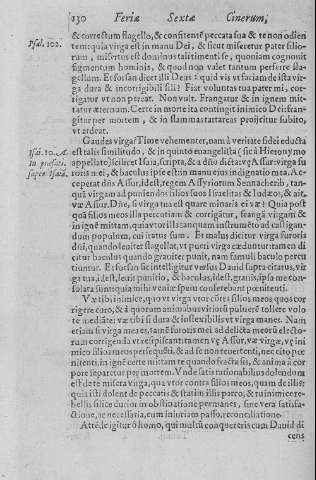 130 Feriæ Sextæ Cinerum,
Psal. 102.
& correctum flagello, & consitente peccata sua & te non odien
tem: quia virga est in manu Dei, & sicut miseretur pater filio-
rum, misertus est dominus talitimenti se, quoniam cognouit
figmentum hominis, & quod non valet tantum perferre fla-
gellum. Et forsan dicet illi Deus: quid vis vt faciam de ista vir-
ga dura & incorrigibili sibi? Fiat voluntas tua pater mi, cor-
rigatur vt non pereat. Non vult. Frangatur & in ignem mit-
tatur æternum. Certe in morte ita contingit inimico Dei: fran-
gitur per mortem, & in flammas tartareas projicitur subito,
vt ardeat.
Isai. 10. A.
In præfati.
super Isaiã.
Gaudes virga? Time vehementer, nam à veritate fidei educta
est talis similitudo, & in quinto euangelista (sic à Hieronymo
appellato) scilicet Isaia, scripta, & a dño dicta: væ Assur: virga fu
roris mei, & baculus ipse est in manu eius indignatio mea. Ac-
ceperat dñs Assur, id est, regem Assyriorum Sennacherib, tan-
quã virgam ad puniendos filios suos Israelitas & Iudæos, & ait,
væ Assur. Dñe, si virga tua est quare minaris ei væ? Quia post
quã filios meos illa percutiam & corrigãtur, frangã virgam &
in ignẽ mittam, quia vt or illa tanquam instrumẽto ad castigan-
dum populum, cui iratus sum. Et malus dicitur virga furoris
dñi, quando leniter flagellat, vt pueri virga exduntur: tamen di
citur baculus quando grauiter punit, nam famuli baculo percu
tiuntur. Et forsan sic intelligitur versus Dauid supra citatus, vir
ga tua, id est, lenis punitio, & baculus, id est, grauis, ipsa me con-
solata sunt: quia mihi veniæ spem conferebant pœnitenti.
Væ tibi inimice, quo vt virga vtor cũ res filios meos quos cor
rigere curo, & à quorum animabus vitiorũ puluerẽ tollere volo
te mediãte: væ tibi si dura & inflexibilis vt virga manes. Nam
etiam si virga mea es, tamẽ furoris mei ad delicta meorũ electo-
rum corrigenda vt resipiscant: tamen væ Assur, væ virgæ, væ ini
mico filiorum se peresequẽti, & ad se non reuertenti, nec cito pœ
nitenti, in ignẽ certe mittam te quando fracta sis, & anima à cor
pore separetur per mortem. Vnde satis rationabilius dolendum
est de te misera virga, qua vtor contra filios meos, quam de illis:
quia isti dolent de peccatis & statim illis parco, & tu inimice re-
bellis silice durior in obstinatione permanes, sine vera satisfa-
ctione, ac necessaria, cum iniuriam passo, reconciliatione.
Attẽde igitur ô homo, qui multũ conquereris cum Dauid di
cens